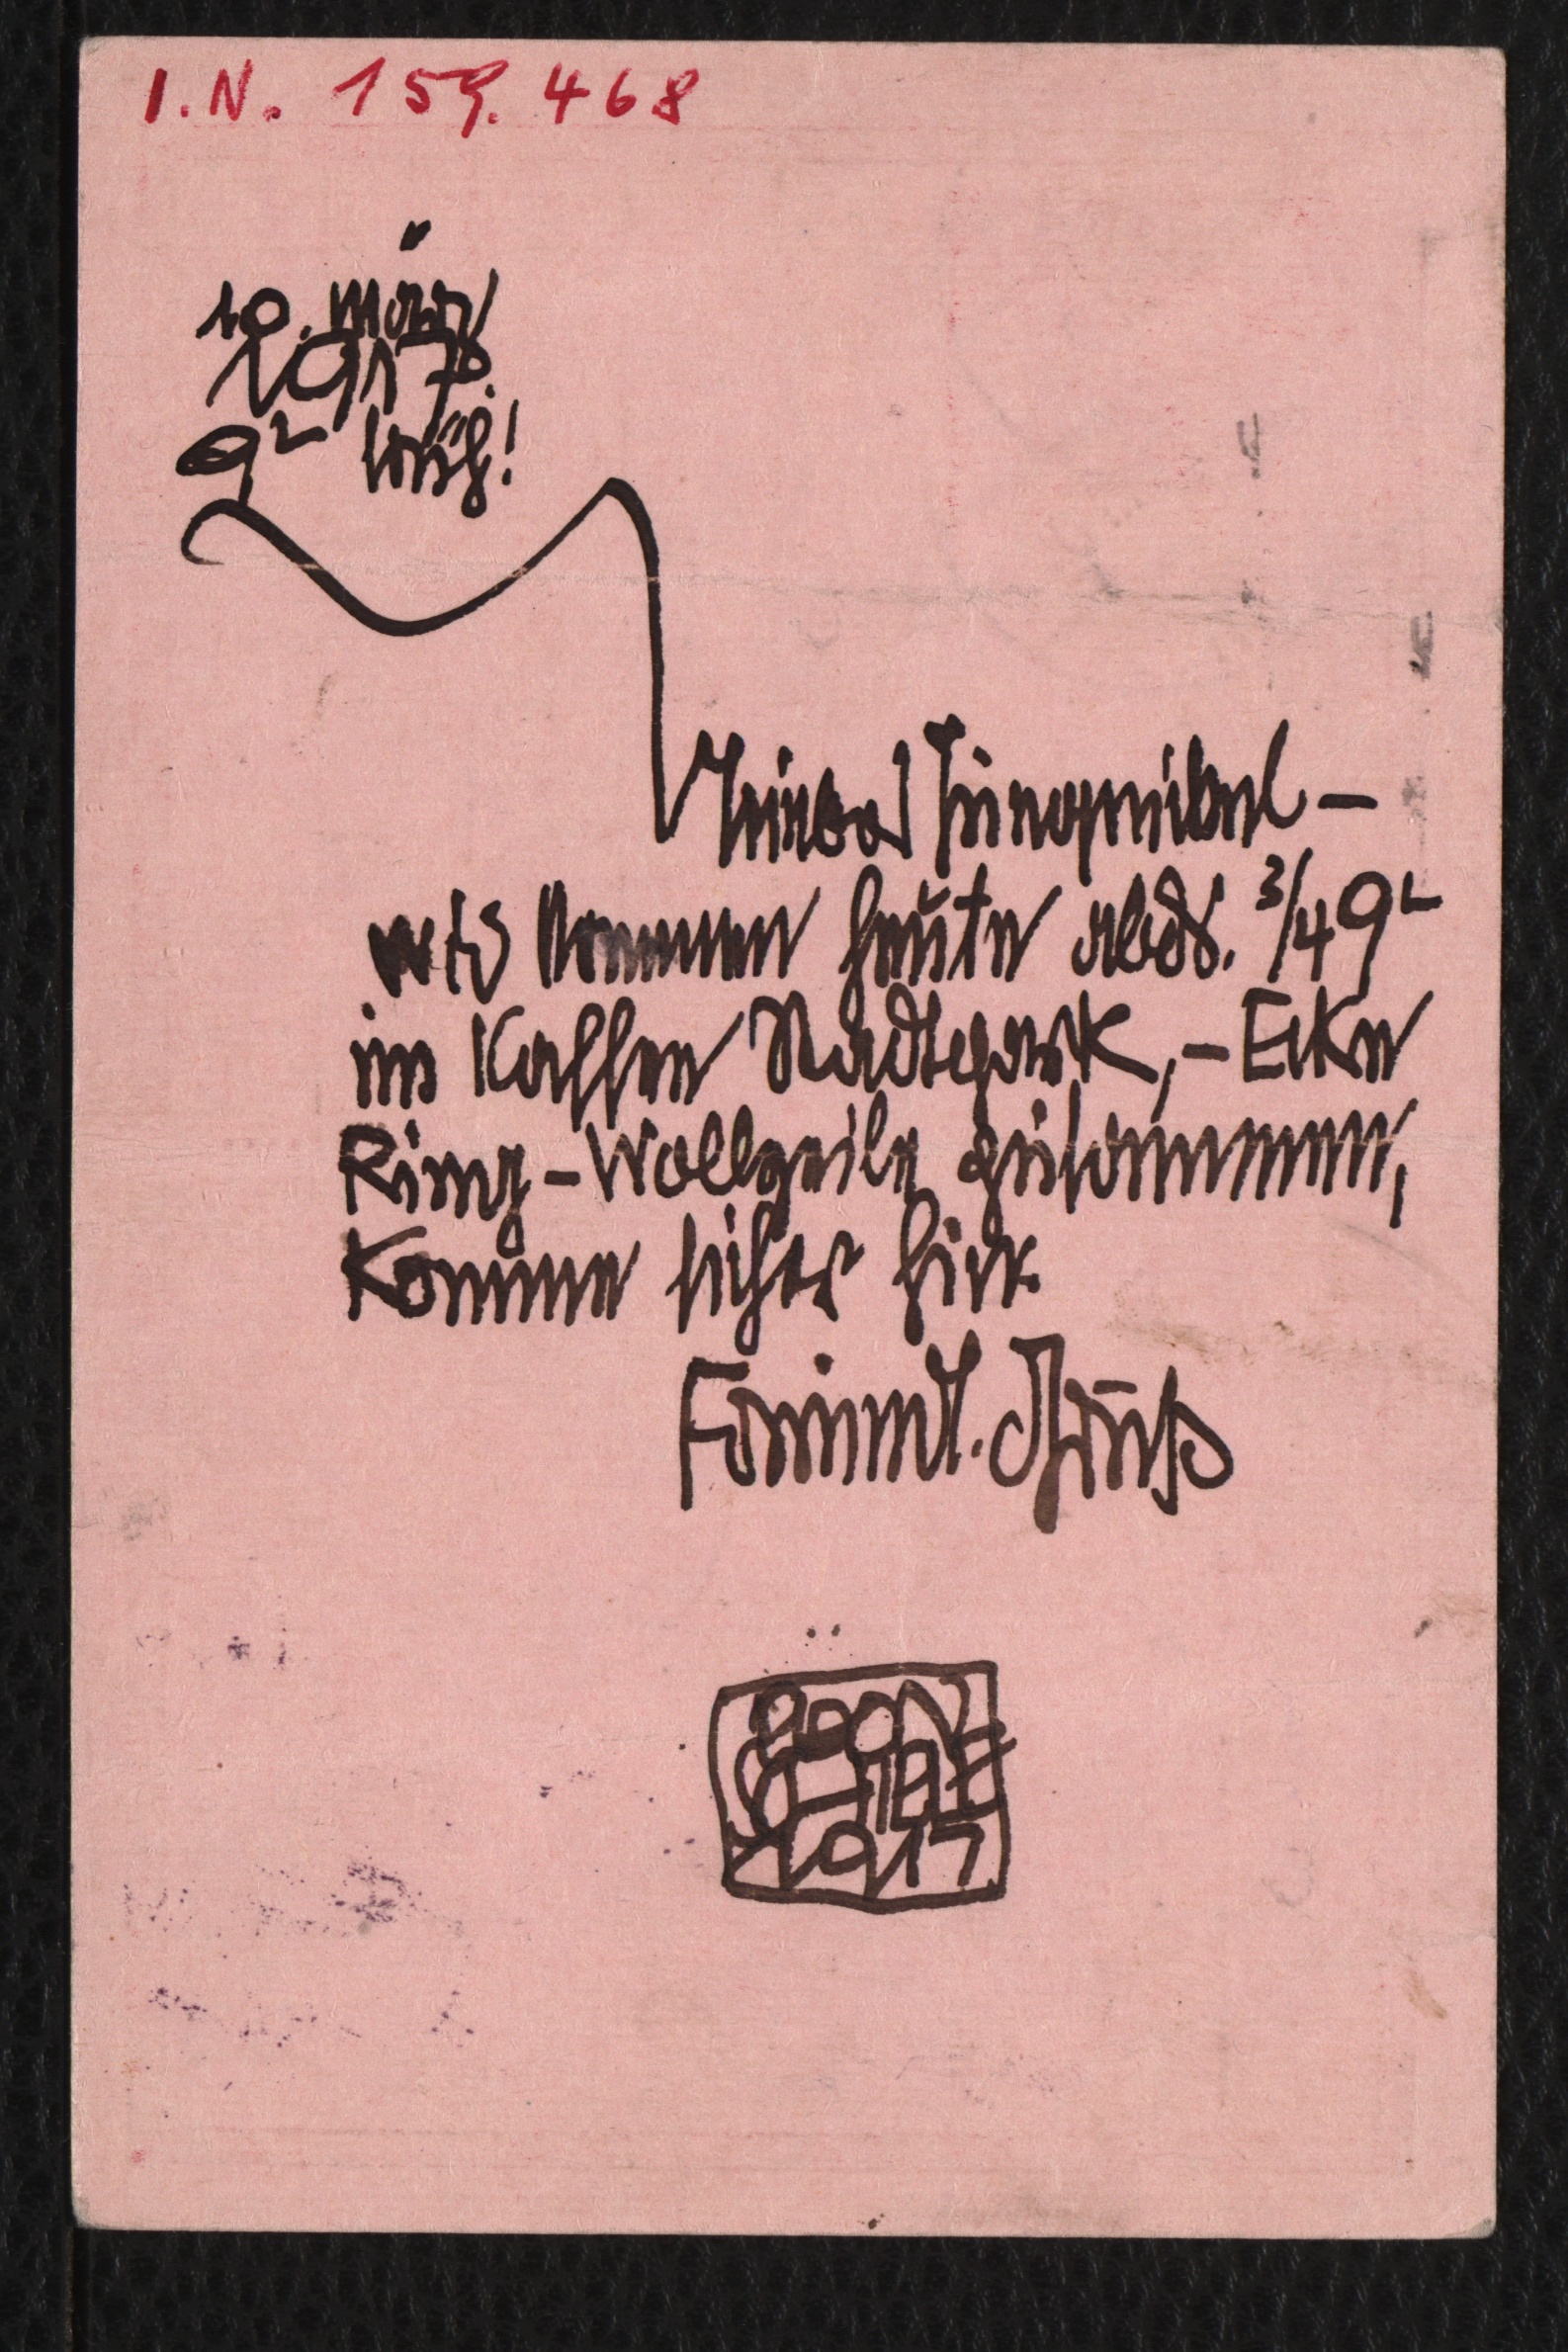 I.N. 159.468
10. März
1917.
9ʰ früh!
Lieber Jungnickel –
wir kommen heute abds. 3/4 9ʰ
im Kaffee Stadtpark, – Ecke
Ring – Wollzeile zusammen,
Komme sicher hin.
Freundl. Gruß
EGON
SCHIELE
1917